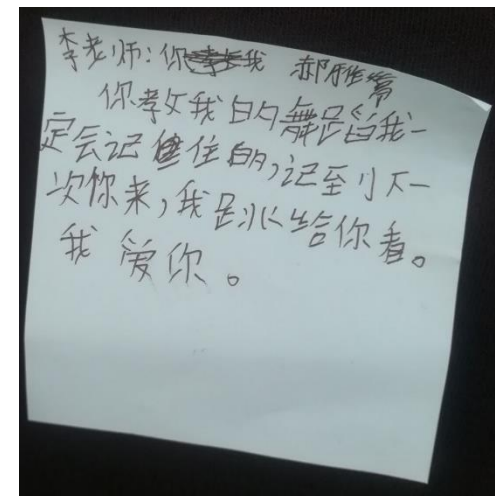 李老师：你我 郝雅雯
你教我的舞蹈我一
定会记住的，记到下一
次你来，我跳给你看。
我爱你。